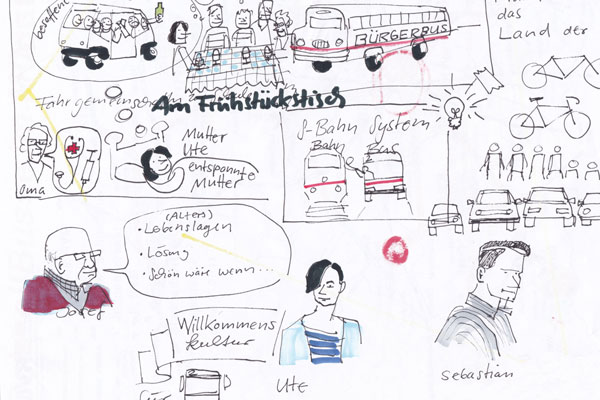 betroffene
BÜRGERBUS
das
Land der
Fahrgemeinschaften
Am Frühstückstisch
Mutter
Ute
entspannte
Mutter
Oma
S-Bahn System
Bahn
Bus
(Alters)
• Lebenslagen
• Lösung
• Schön wäre wenn...
Josef
Willkommens
kultur
für
Ute
Sebastian